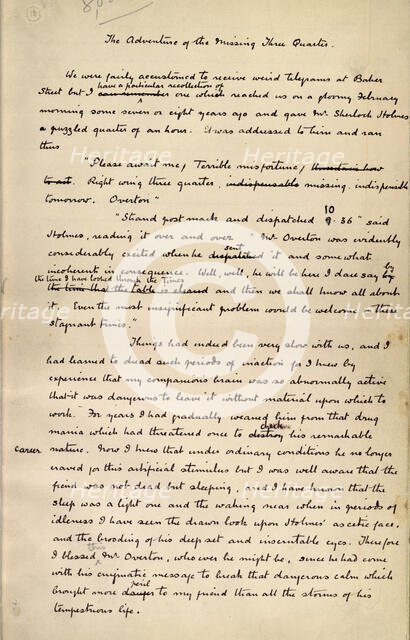 The Adventure of the Missing Three Quarter.
We were fairly accustomed to receive weird telegrams at Baker
have a particular recollection of
Street but I can remember one which reached us on a gloomy February
morning some seven or eight years ago and gave Mr. Sherlock Holmes
a puzzled quarter of an hour. It was addressed to him and ran
thus
"Please await me, Terrible misfortune, Uncertain how
to act. Right wing three quarter, indispensable missing, indispensible
tomorrow. Overton"
10
"Strand post mark and dispatched 9.36" said
sent
Holmes, reading it over and over. "Mr. Overton was evidently
considerably excited when he dispatched it and somewhat
incoherent in consequence. Well, well, he will be here I dare say by
the time I have looked through the Times
the time that the table is cleared and then we shall know all about
it. Even the most insignificant problem would be welcome in these
stagnant times."
Things had indeed been very slow with us, and I
had learned to dread such periods of inaction for I knew by
experience that my companion's brain was so abnormally active
that it was dangerous to leave it without material upon which to
work. For years I had gradually weaned him from that drug
check
mania which had threatened once to destroy his remarkable
career nature. Now I knew that under ordinary conditions he no longer
craved for this artificial stimulus but I was well aware that the
fiend was not dead but sleeping, and I have known that the
sleep was a light one and the waking near when in periods of
idleness I have seen the drawn look upon Holmes' ascetic face,
and the brooding of his deep set and inscrutable eyes. Therefore
this
I blessed Mr. Overton, whoever he might be, since he had come
with his enigmatic message to break that dangerous calm which
peril
brought more danger to my friend than all the storms of his
tempestuous life.
Heritage
Heritage
Heritage
Heritage
Heritage
Heritage